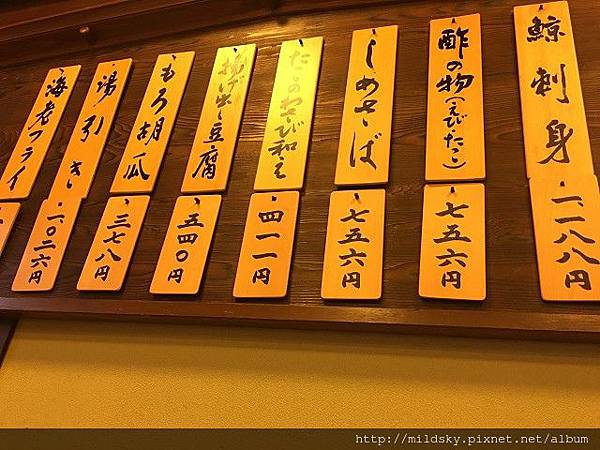 鯨刺身
一、一八八円
酢の物(えび・たこ)
七五六円
しめさば
七五六円
たこのわさび和え
四一一円
揚げ出し豆腐
五四〇円
もろ胡瓜
三七八円
湯引き
一、〇二六円
海老フライ
http://mildsky.pixnet.net/album